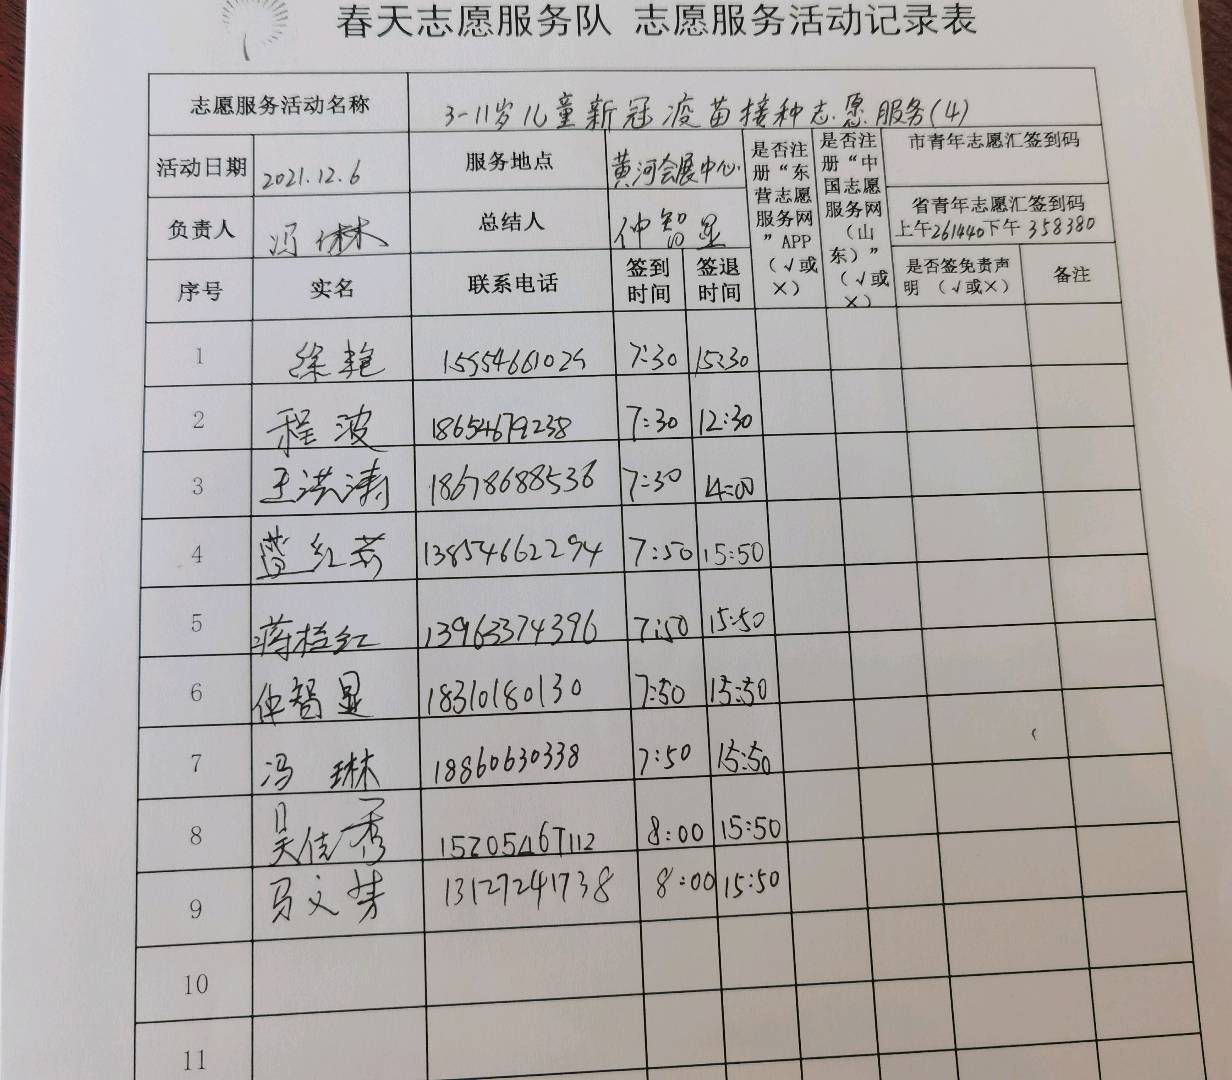 春天志愿服务队 志愿服务活动记录表
志愿服务活动名称 3-11岁儿童新冠疫苗接种志愿服务(4)
活动日期 2021.12.6 服务地点 黄河会展中心 是否注册“东营志愿服务网”APP（√或×） 是否注册“中国志愿服务网（山东）”（√或×） 市青年志愿汇签到码
负责人 冯琳 总结人 仲智显 省青年志愿汇签到码
上午261440下午358380
序号 实名 联系电话 签到时间 签退时间 是否签免责声明（√或×） 备注
1 徐艳 15554661025 7:30 15:30
2 程波 18654679238 7:30 12:30
3 王洪涛 18678688536 7:30 14:00
4 红芳 13854662294 7:50 15:50
5 蒋桂红 13963374396 7:50 15:50
6 仲智显 18310180130 7:50 15:50
7 冯琳 18860630338 7:50 15:50
8 吴佳秀 15205467112 8:00 15:50
9 马文 13127241738 8:00 15:50
10
11